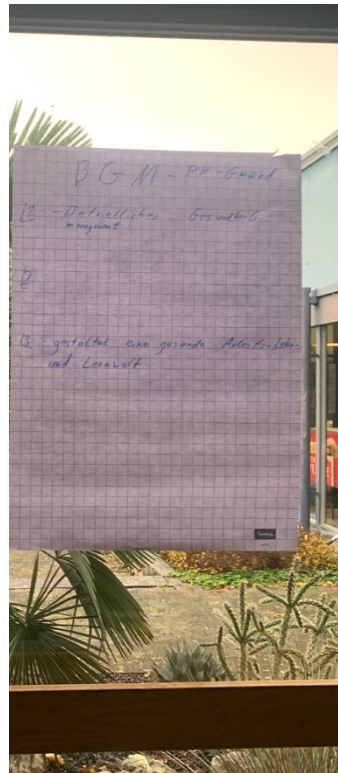 BGM - PH-Gmünd
1. - Betriebliches Gesundheits
management
2.
3. - gestaltet eine gesunde Arbeits-Lehr-
und Lernwelt